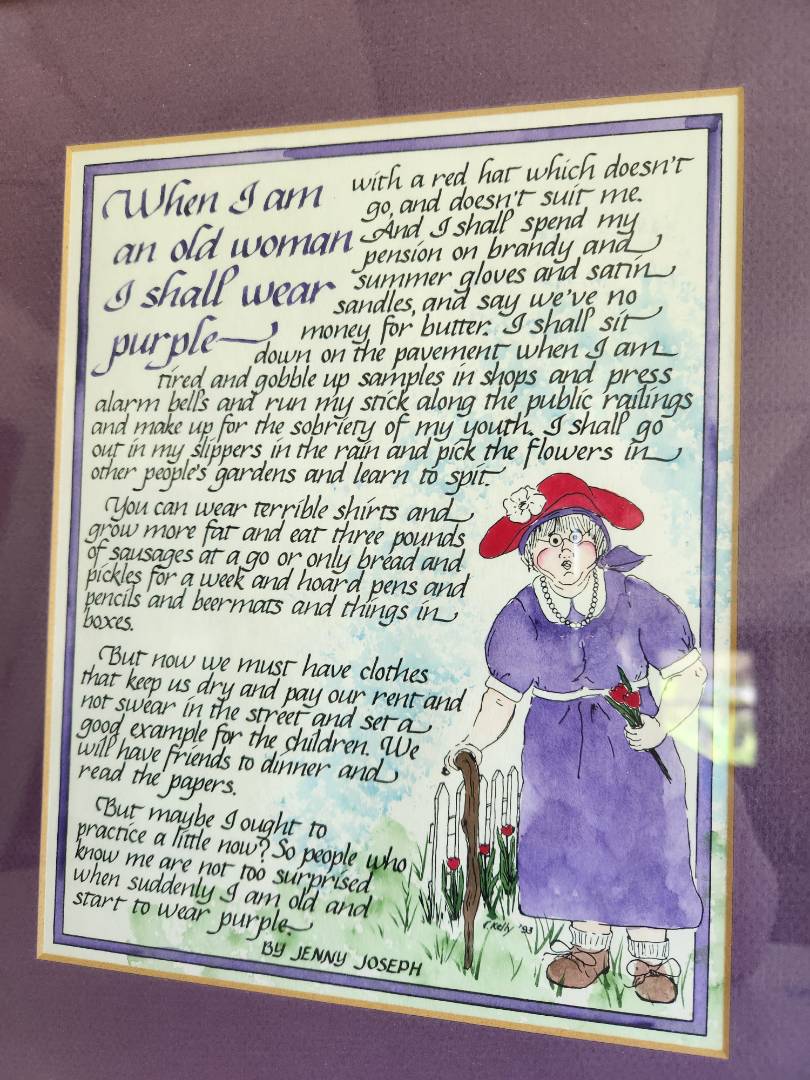 When I am
an old woman
I shall wear
purple
with a red hat which doesn't
go, and doesn't suit me.
And I shall spend my
pension on brandy and
summer gloves and satin
sandles, and say we've no
money for butter. I shall sit
down on the pavement when I am
tired and gobble up samples in shops and press
alarm bells and run my stick along the public railings
and make up for the sobriety of my youth. I shall go
out in my slippers in the rain and pick the flowers in
other people's gardens and learn to spit.
You can wear terrible shirts and
grow more fat and eat three pounds
of sausages at a go or only bread and
pickles for a week and hoard pens and
pencils and beermats and things in
boxes.
But now we must have clothes
that keep us dry and pay our rent and
not swear in the street and set a
good example for the children. We
will have friends to dinner and
read the papers.
But maybe I ought to
practice a little now? So people who
know me are not too surprised
when suddenly I am old and
start to wear purple.
BY JENNY JOSEPH
C Kelly '93